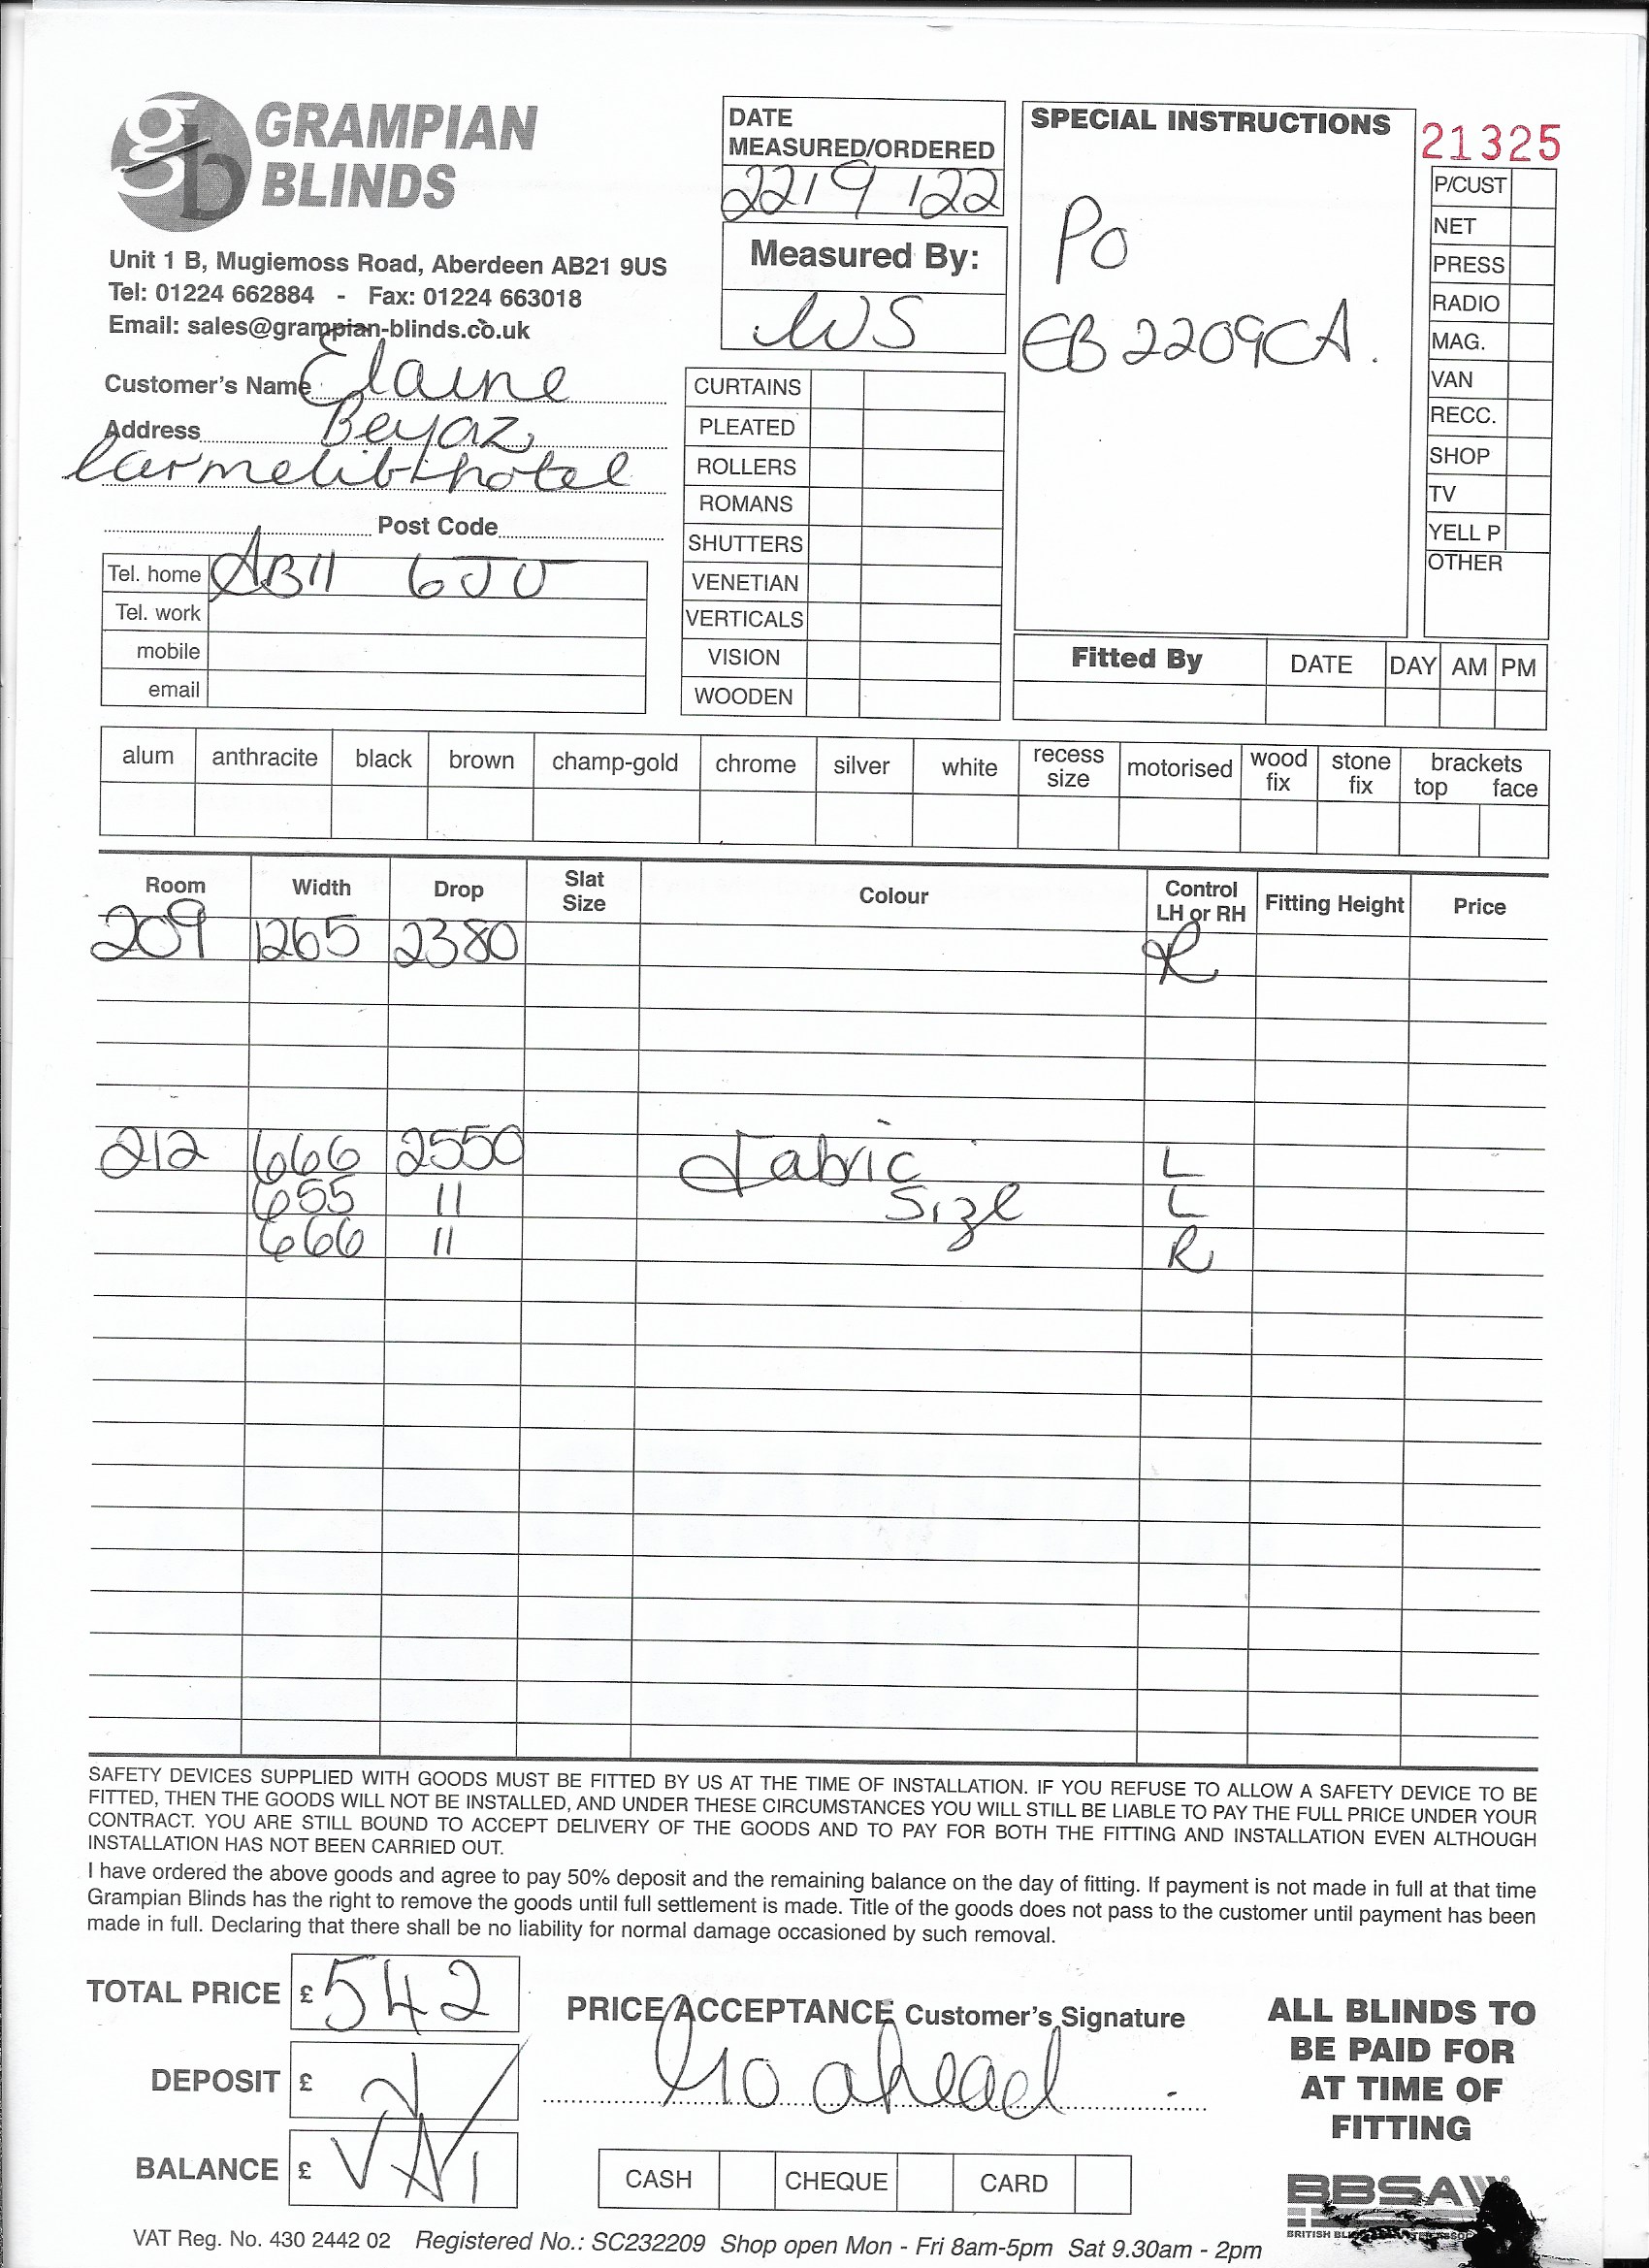 gb GRAMPIAN
BLINDS
Unit 1 B, Mugiemoss Road, Aberdeen AB21 9US
Tel: 01224 662884 - Fax: 01224 663018
Email: sales@grampian-blinds.co.uk
Customer's Name Elaine
Address Beyaz,
Carmelite hotel
Post Code
Tel. home AB11 6JU
Tel. work
mobile
email
DATE
MEASURED/ORDERED
22/9/22
Measured By:
WS
CURTAINS
PLEATED
ROLLERS
ROMANS
SHUTTERS
VENETIAN
VERTICALS
VISION
WOODEN
SPECIAL INSTRUCTIONS
PO
EB2209CA.
21325
P/CUST
NET
PRESS
RADIO
MAG.
VAN
RECC.
SHOP
TV
YELL P
OTHER
Fitted By DATE DAY AM PM
alum anthracite black brown champ-gold chrome silver white recess size motorised wood fix stone fix brackets top face
Room Width Drop Slat Size Colour Control LH or RH Fitting Height Price
209 1265 2380 R
212 666 2550 Fabric L
655 11 Size L
666 11 R
SAFETY DEVICES SUPPLIED WITH GOODS MUST BE FITTED BY US AT THE TIME OF INSTALLATION. IF YOU REFUSE TO ALLOW A SAFETY DEVICE TO BE
FITTED, THEN THE GOODS WILL NOT BE INSTALLED, AND UNDER THESE CIRCUMSTANCES YOU WILL STILL BE LIABLE TO PAY THE FULL PRICE UNDER YOUR
CONTRACT. YOU ARE STILL BOUND TO ACCEPT DELIVERY OF THE GOODS AND TO PAY FOR BOTH THE FITTING AND INSTALLATION EVEN ALTHOUGH
INSTALLATION HAS NOT BEEN CARRIED OUT.
I have ordered the above goods and agree to pay 50% deposit and the remaining balance on the day of fitting. If payment is not made in full at that time
Grampian Blinds has the right to remove the goods until full settlement is made. Title of the goods does not pass to the customer until payment has been
made in full. Declaring that there shall be no liability for normal damage occasioned by such removal.
TOTAL PRICE £ 542
DEPOSIT £
BALANCE £
PRICE ACCEPTANCE Customer's Signature
Go ahead
CASH CHEQUE CARD
ALL BLINDS TO
BE PAID FOR
AT TIME OF
FITTING
BBSA
VAT Reg. No. 430 2442 02 Registered No.: SC232209 Shop open Mon - Fri 8am-5pm Sat 9.30am - 2pm